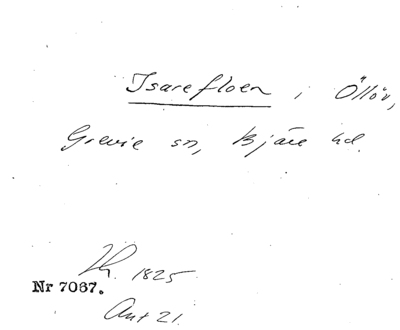 Isarefloen i Öllöv,
Grevie sn, Bjäre hd.
1825
Nr 7067.
Ant 21.